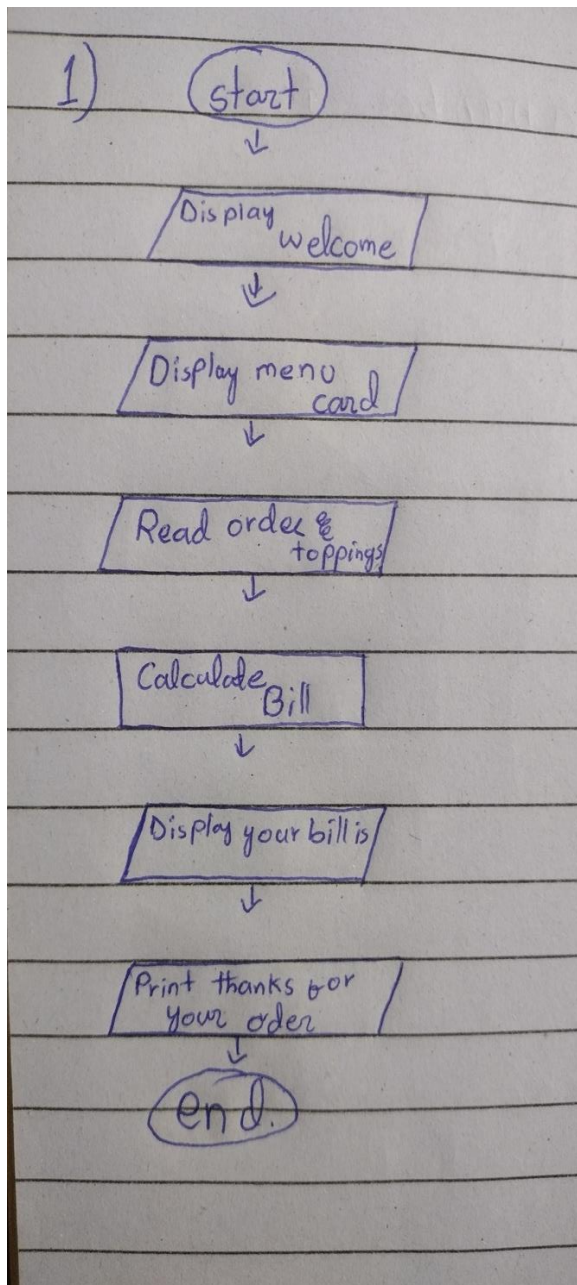 1)
start
Display
welcome
Display menu
card
Read order &
toppings
Calculate
Bill
Display your bill is
Print thanks for
your oder
end.